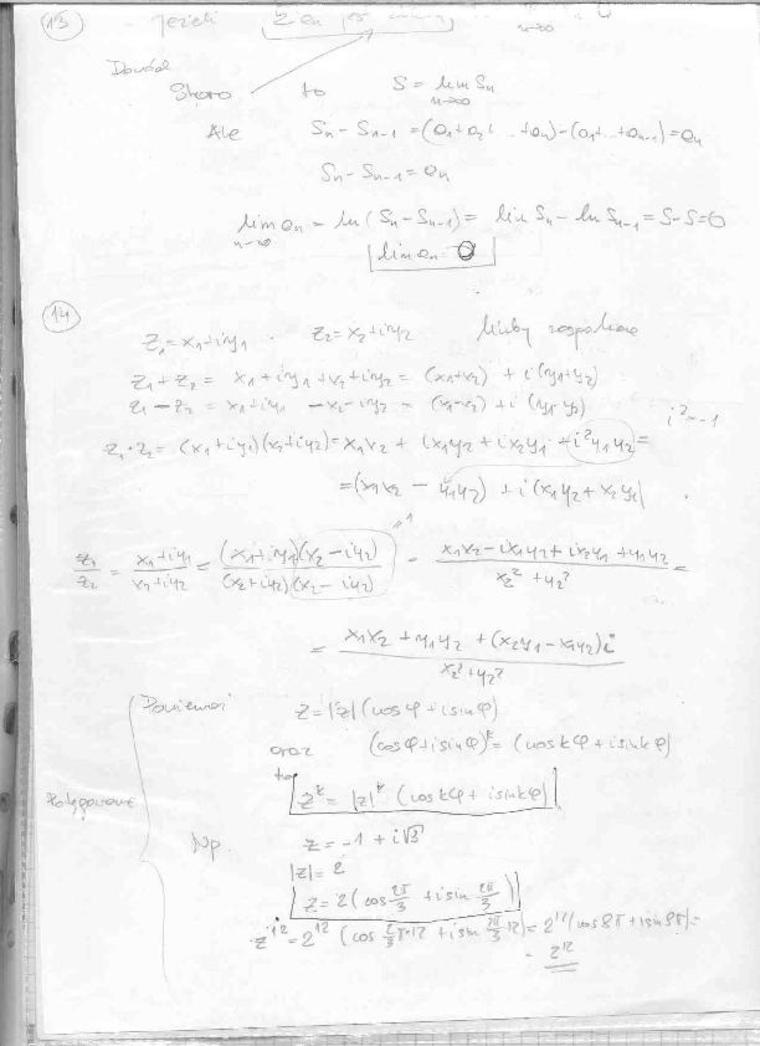 13 jeżeli Σ an jest n→∞
Dowód
Skoro to S = lim Sn
n→∞
Ale Sn - Sn-1 = (a1+a2+...+an)-(a1+...+an-1) = an
Sn - Sn-1 = an
lim an = lim (Sn - Sn-1) = lim Sn - lim Sn-1 = S-S=0
n→∞
lim an = 0
14
z1 = x1+iy1 . z2 = x2+iy2 liczby zespolone
z1+z2 = x1+iy1+x2+iy2 = (x1+x2) + i(y1+y2)
z1-z2 = x1+iy1 -x2-iy2 = (x1-x2) + i(y1-y2)
i²=-1
z1·z2 = (x1+iy1)(x2+iy2) = x1x2 + ix1y2 + ix2y1 + i²y1y2 =
= (x1x2 - y1y2) + i(x1y2 + x2y1)
z1/z2 = (x1+iy1)/(x2+iy2) = (x1+iy1)(x2-iy2)/(x2+iy2)(x2-iy2) = (x1x2-ix1y2+ix2y1+y1y2)/(x2²+y2²) =
=1
= (x1x2+y1y2+(x2y1-x1y2)i)/(x2²+y2²)
Ponieważ z=|z|(cosφ+isinφ)
oraz (cosφ+isinφ)^k = (cos kφ+isin kφ)
to z^k = |z|^k (cos kφ + isin kφ)
Potęgowanie
Np. z = -1 + i√3
|z| = 2
z = 2(cos 2π/3 + isin 2π/3)
z^12 = 2^12 (cos 2/3π·12 + isin 2π/3·12) = 2^12(cos8π+isin8π) =
= 2^12